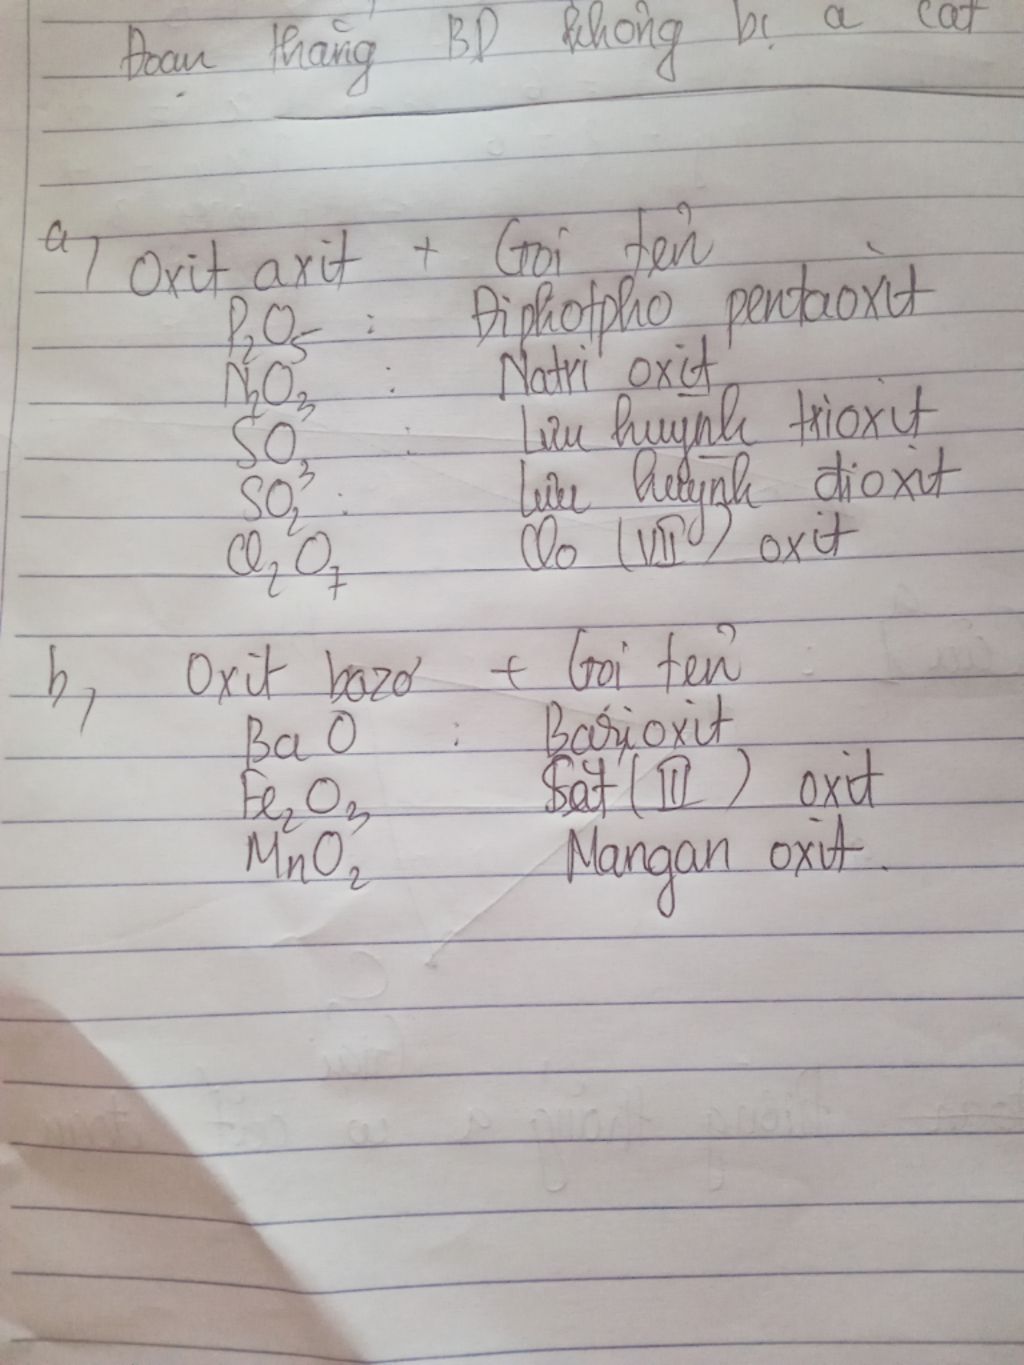 Đoạn thẳng BD không bị a cắt
a, Oxit axit + Gọi tên
P2O5 : Điphotpho pentaoxit
N2O3 : Natri oxit
SO3 : Lưu huỳnh trioxit
SO2 : Lưu huỳnh đioxit
Cl2O7 Clo (VII) oxit
b, Oxit bazơ + Gọi tên
BaO : Bari oxit
Fe2O3 Sắt (III) oxit
MnO2 Mangan oxit.